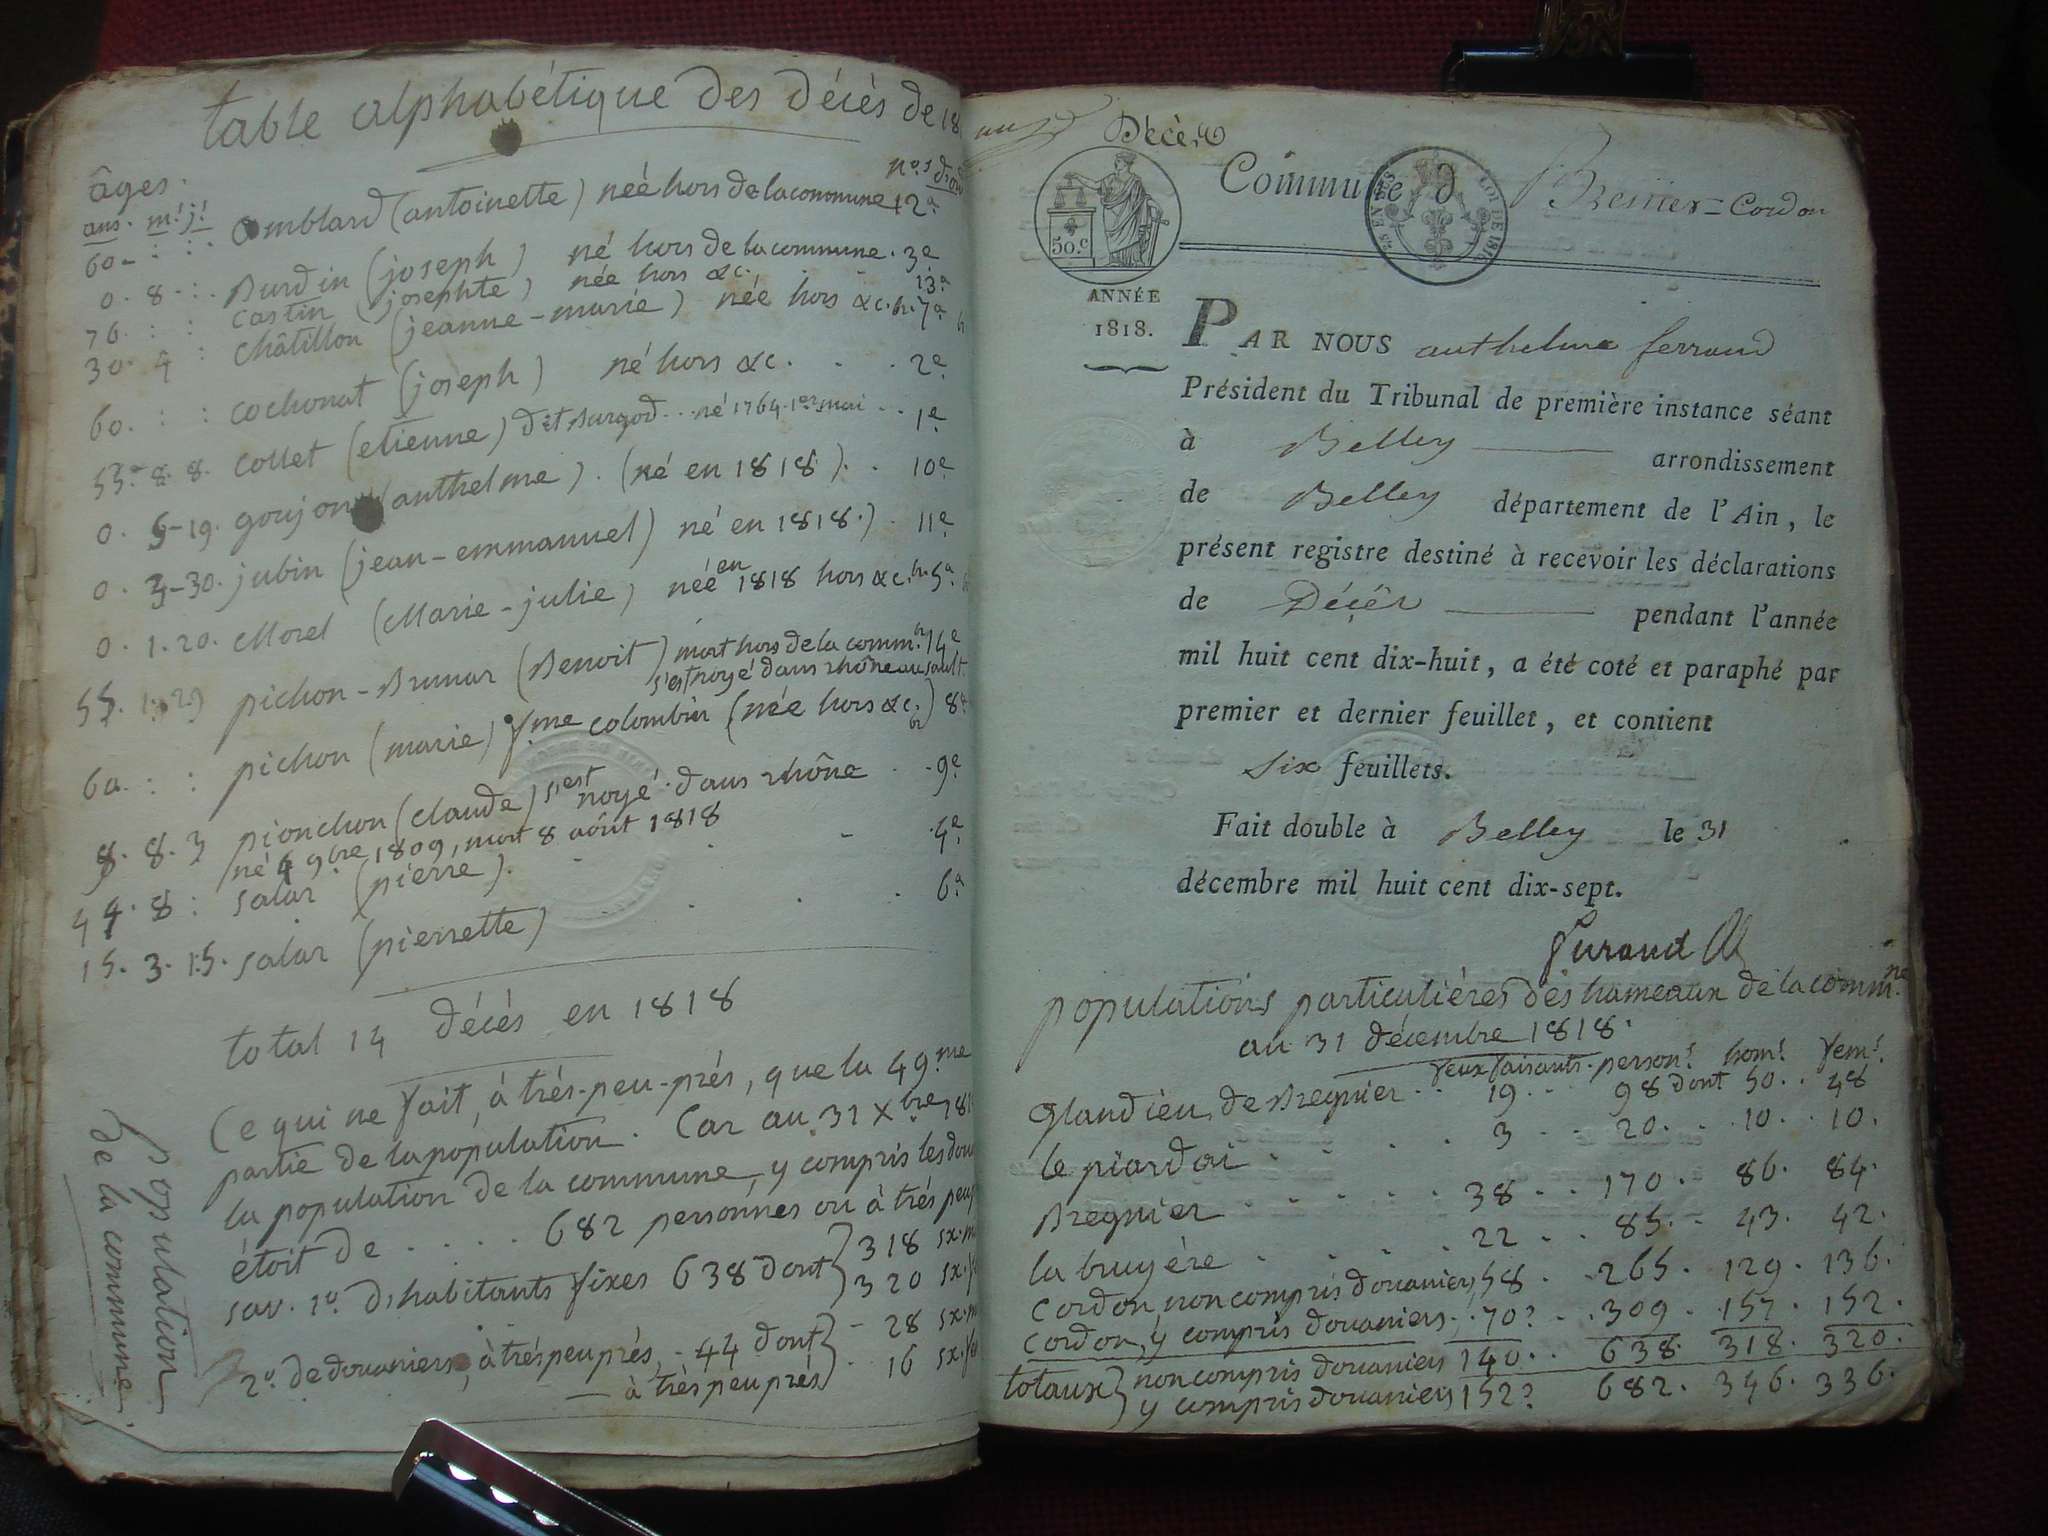 table alphabétique des décès de 18
âges.
ans. m.s j.s
n.os d'ord
60 - : : amblard (antoinette) née hors de la commune 12e
0. 8. : Burdin (joseph) né hors de la commune. 3e
76. : : Castin (josephte) née hors &c. 13e
30. 4 : Châtillon (jeanne-marie) née hors &c. 7e
60. : : cochonat (joseph) né hors &c. . . . 2e
53. 8. 8. Collet (etienne) dit Burgod . . né 1764. 1er mai . . 1e
0. 5-19. goujon (anthelme). (né en 1818). . 10e
0. 3-30. jubin (jean-emmanuel) né en 1818.) . 11e
0. 1. 20. Morel (Marie-julie) née en 1818 hors &c. 5e
55. 1. 29 pichon-Brunar (Benoit) mort hors de la comm.ne 14e
s'est noyé dans rhône au sault.
60. : : pichon (marie) f.me colombin (née hors &c.) 8e
8. 8. 3 pionchon (claude) s'est noyé dans rhône . . 9e
né 4 9bre 1809, mort 8 août 1818
44. 8 : salar (pierre). - . - 4e
15. 3. 15. salar (pierrette) . . . . 6e
total 14 décès en 1818
Ce qui ne fait, à très-peu-près, que la 49.me
partie de la population. Car au 31 Xbre 181
la population de la commune, y compris les doua
étoit de . . . . 682 personnes ou à très peu p
sav. 1o. d'habitants fixes 638 dont } 318 sx. m
320 sx. f
2o. de douaniers, à très peu près, - 44 dont } - 28 sx. m
- à très peu près } . . 16 sx. fe
population
de la commune.
Décès
Commune d Bresnier = Cordon
50.c
LOI DE 1816
ANNÉE
1818.
PAR NOUS anthelme ferrand
Président du Tribunal de première instance séant
à Belley arrondissement
de Belley département de l'Ain, le
présent registre destiné à recevoir les déclarations
de Décès pendant l'année
mil huit cent dix-huit, a été coté et paraphé par
premier et dernier feuillet, et contient
six feuillets.
Fait double à Belley le 31
décembre mil huit cent dix-sept.
populations particulières des hameaux de la comm.ne
au 31 décembre 1818.
feux faisants. person.s hom.s fem.s
Glandieu de Bregnier . . 19 . . 98 dont 50 . . 48
le piardoi . . . . 3 . . 20. . 10. . 10.
Bregnier . . . . . 38 . . 170 . 86. 84.
la bruyère . . . . 22 . . 85. . 43. 42.
Cordon, non compris douaniers, 58 . . 265. 129. 136.
Cordon, y compris douaniers, . 70? . . 309. 157. 152.
totaux } non compris douaniers 140. . 638. 318. 320.
y compris douaniers 152? 682. 346. 336.